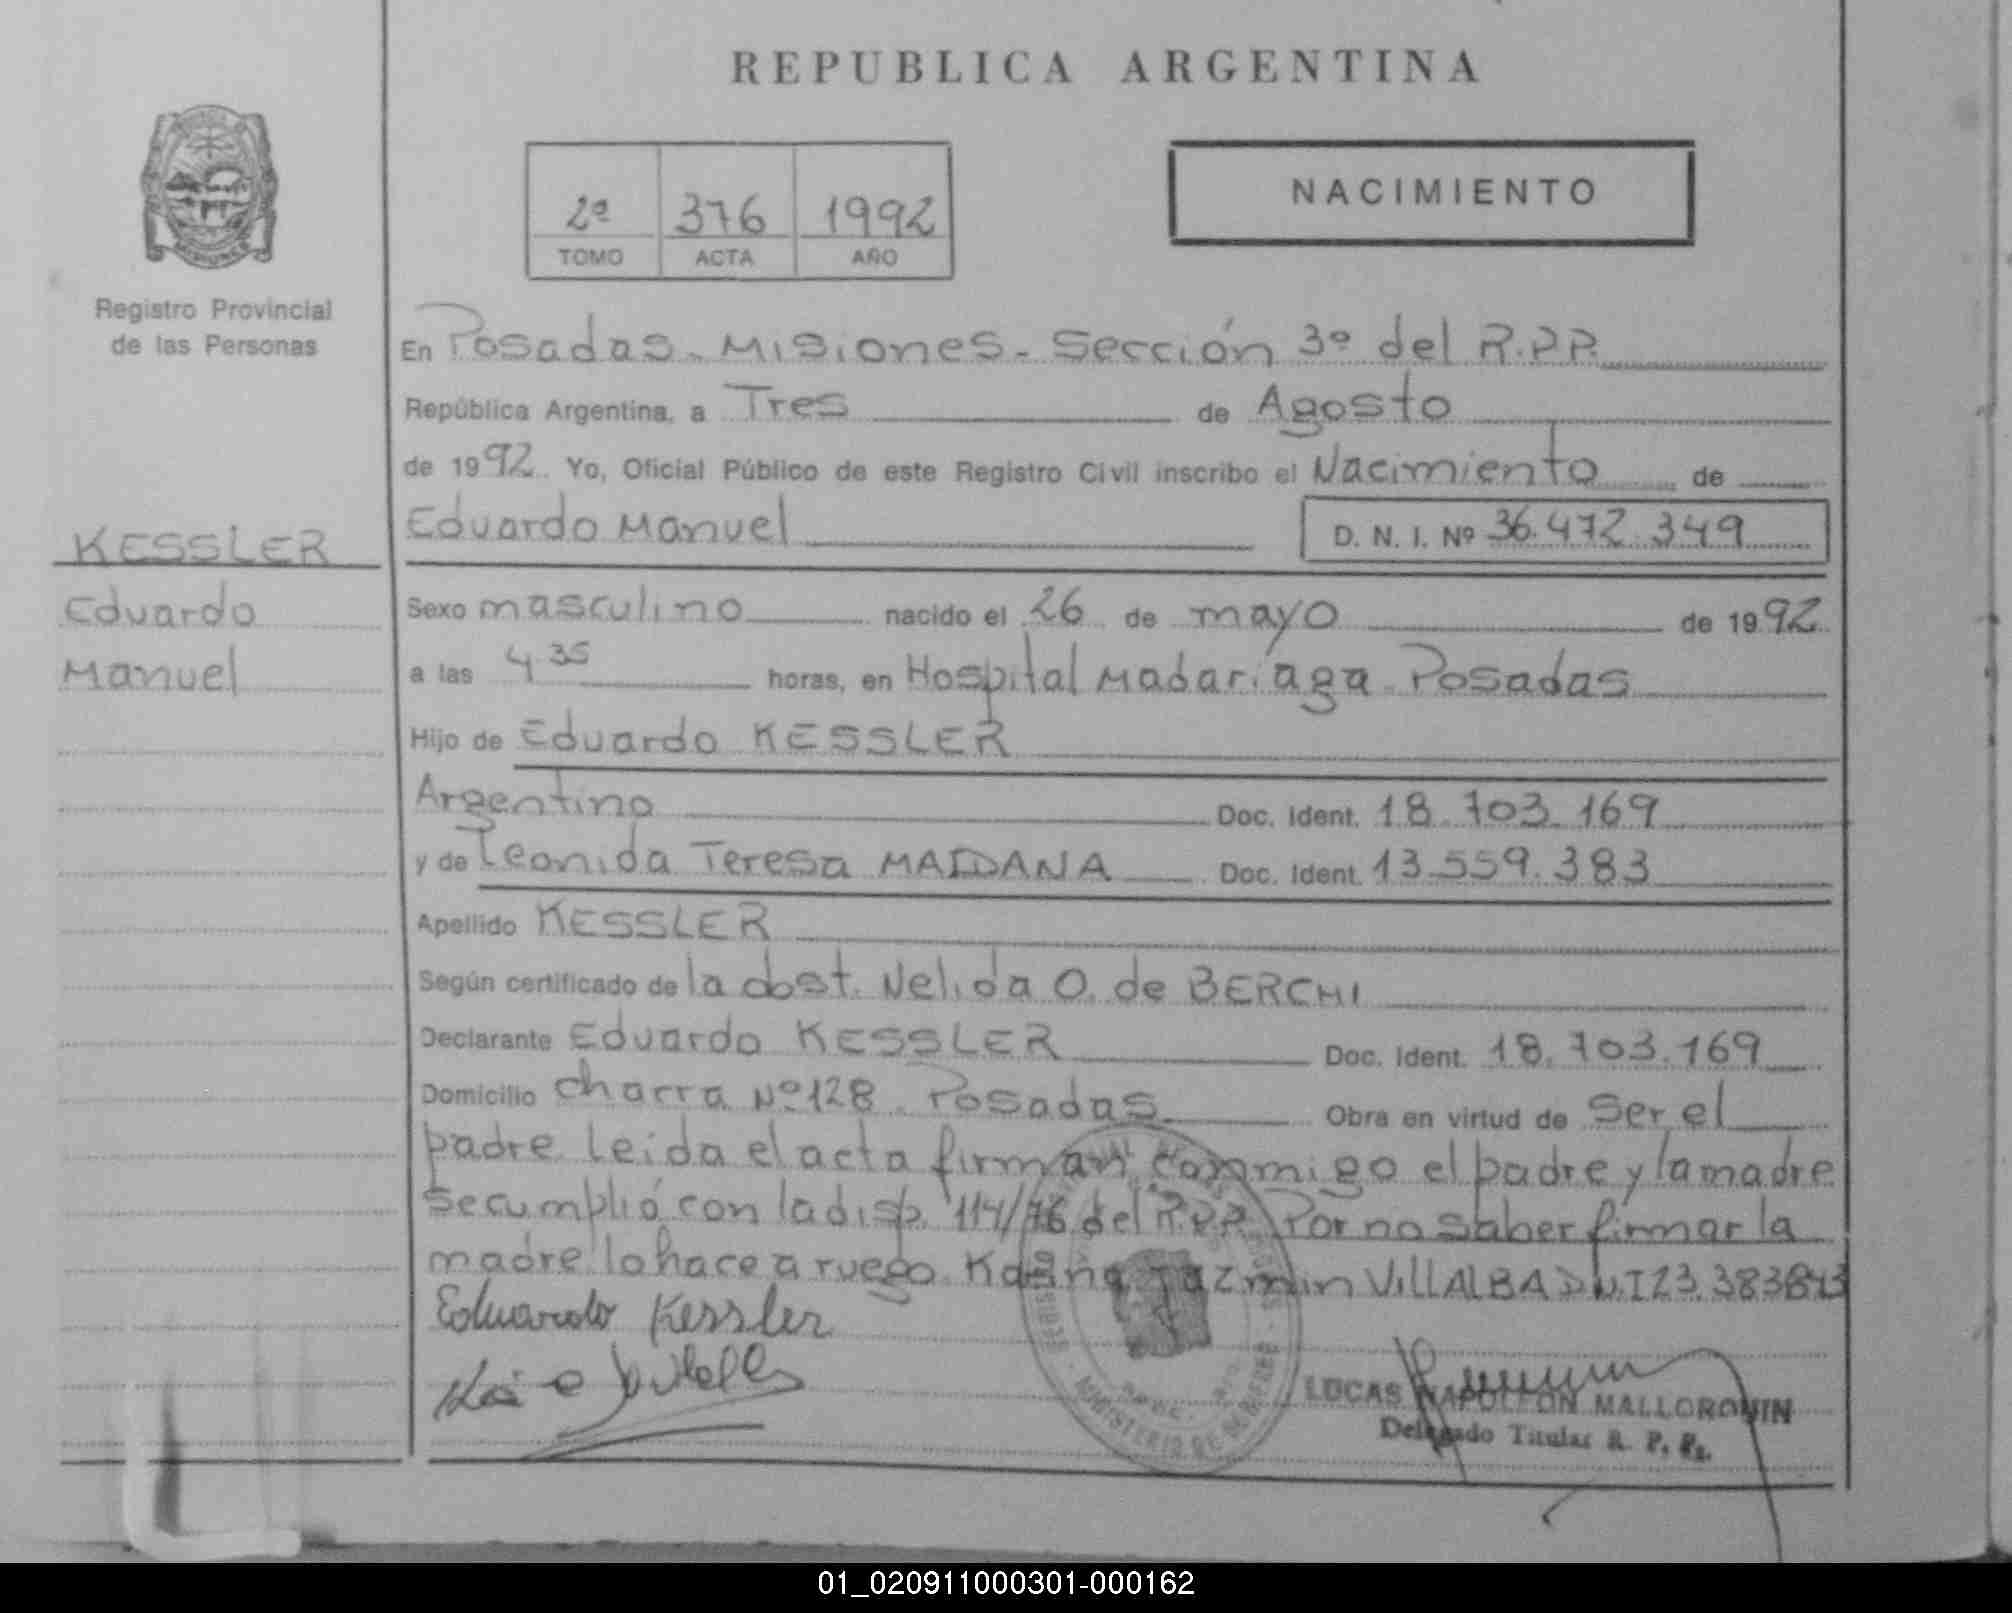 REPUBLICA ARGENTINA
2º 376 1992
TOMO ACTA AÑO
NACIMIENTO
Registro Provincial
de las Personas
KESSLER
Eduardo
Manuel
En Posadas - Misiones - Sección 3º del R.P.P.
República Argentina, a Tres de Agosto
de 1992 Yo, Oficial Público de este Registro Civil inscribo el Nacimiento de
Eduardo Manuel D. N. I. Nº 36.472.349
Sexo masculino nacido el 26 de mayo de 1992
a las 4.35 horas, en Hospital Madariaga - Posadas
Hijo de Eduardo KESSLER
Argentino Doc. Ident. 18.703.169
y de Leonida Teresa MAIDANA Doc. Ident. 13.559.383
Apellido KESSLER
Según certificado de la obst. Nelida O. de BERCHI
Declarante Eduardo KESSLER Doc. Ident. 18.703.169
Domicilio charra Nº 128 - Posadas Obra en virtud de Ser el
padre. Leida el acta firman conmigo el padre y la madre
se cumplió con la disp. 114/76 del R.P.P. Por no saber firmar la
madre lo hace a ruego Yazmin VILLALBA D.N.I 23.383.843
Eduardo Kessler
LUCAS NAPOLEON MALLORQUIN
Delegado Titular R. P. P.
MINISTERIO DE GOBIERNO
01_020911000301-000162